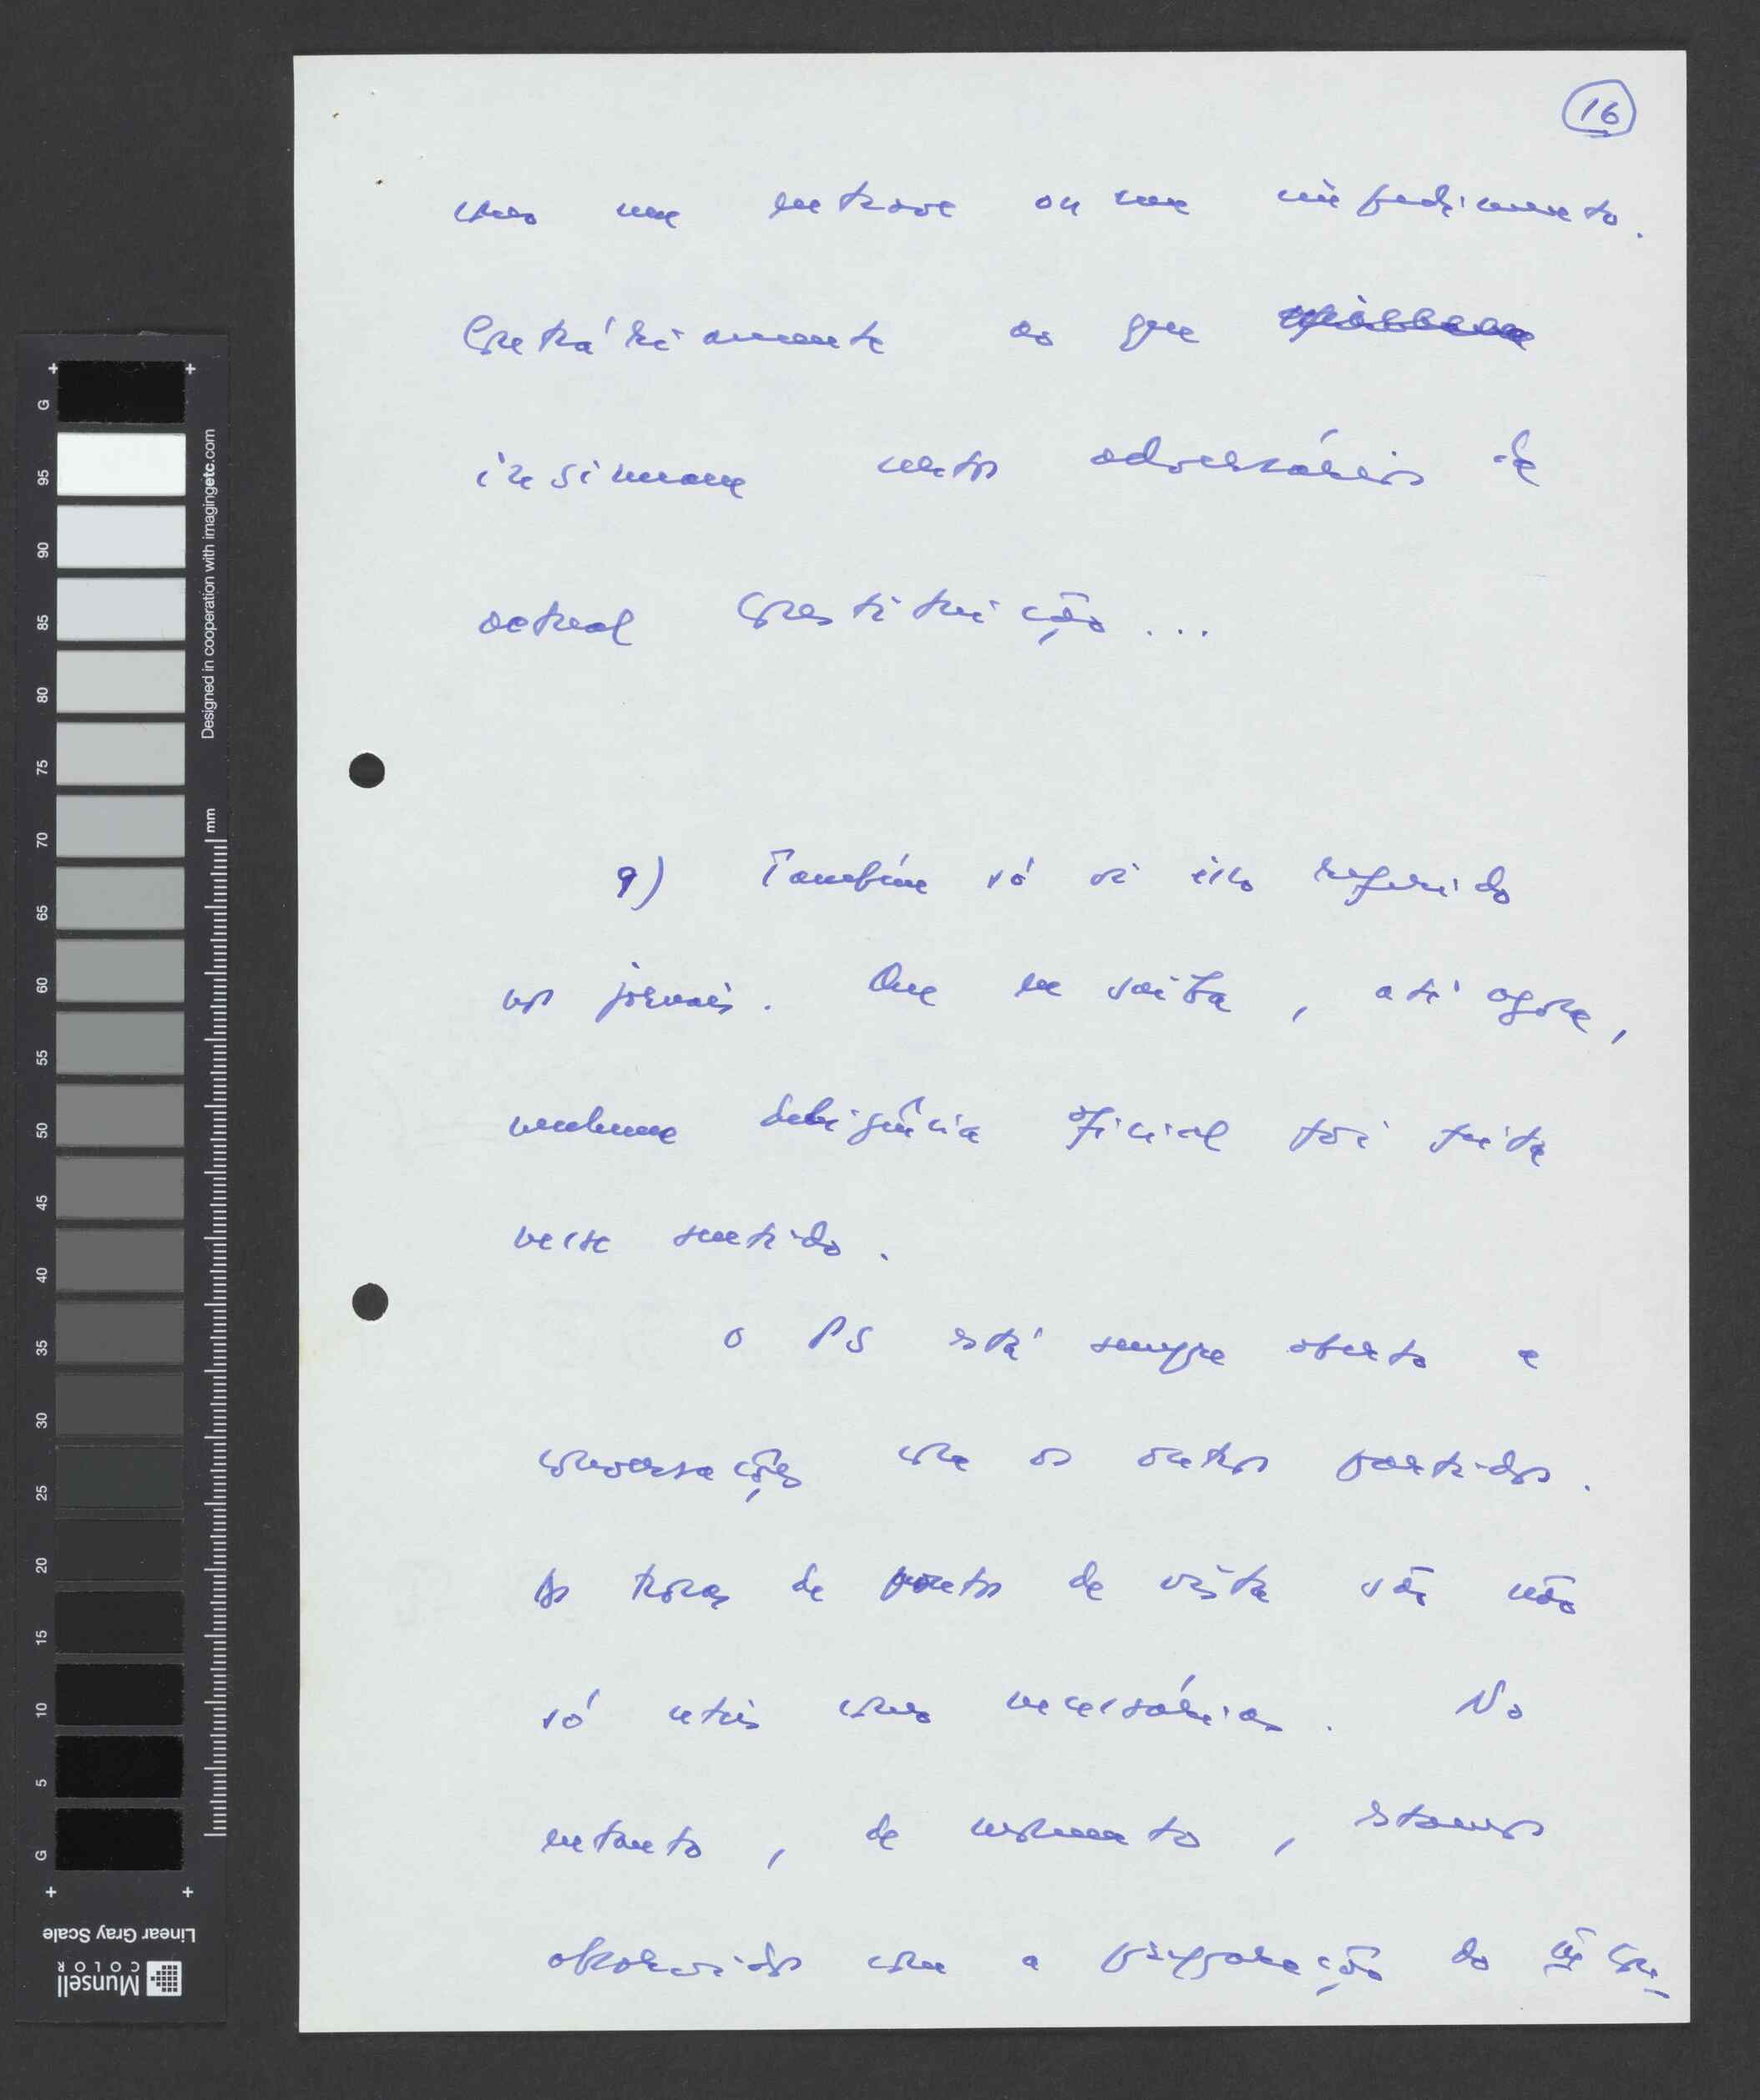 16
como um entrave ou um impedimento.
Contráriamente ao que
insinuam certos adversários da
actual Constituição...
9) Também só vi isso referido
nos jornais. Que eu saiba, até agora,
nenhuma deligência oficial foi feita
nesse sentido.
O PS está sempre aberto a
conversações com os outros partidos.
As trocas de pontos de vista são não
só uteis como necessárias. No
entanto, de momento, estamos
absorvidos com a preparação do
G 95 90 85 80 75 70 65 60 55 50 45 40 35 30 25 20 15 10 5 G
Designed in cooperation with imagingetc.com
mm
Linear Gray Scale
Munsell
COLOR